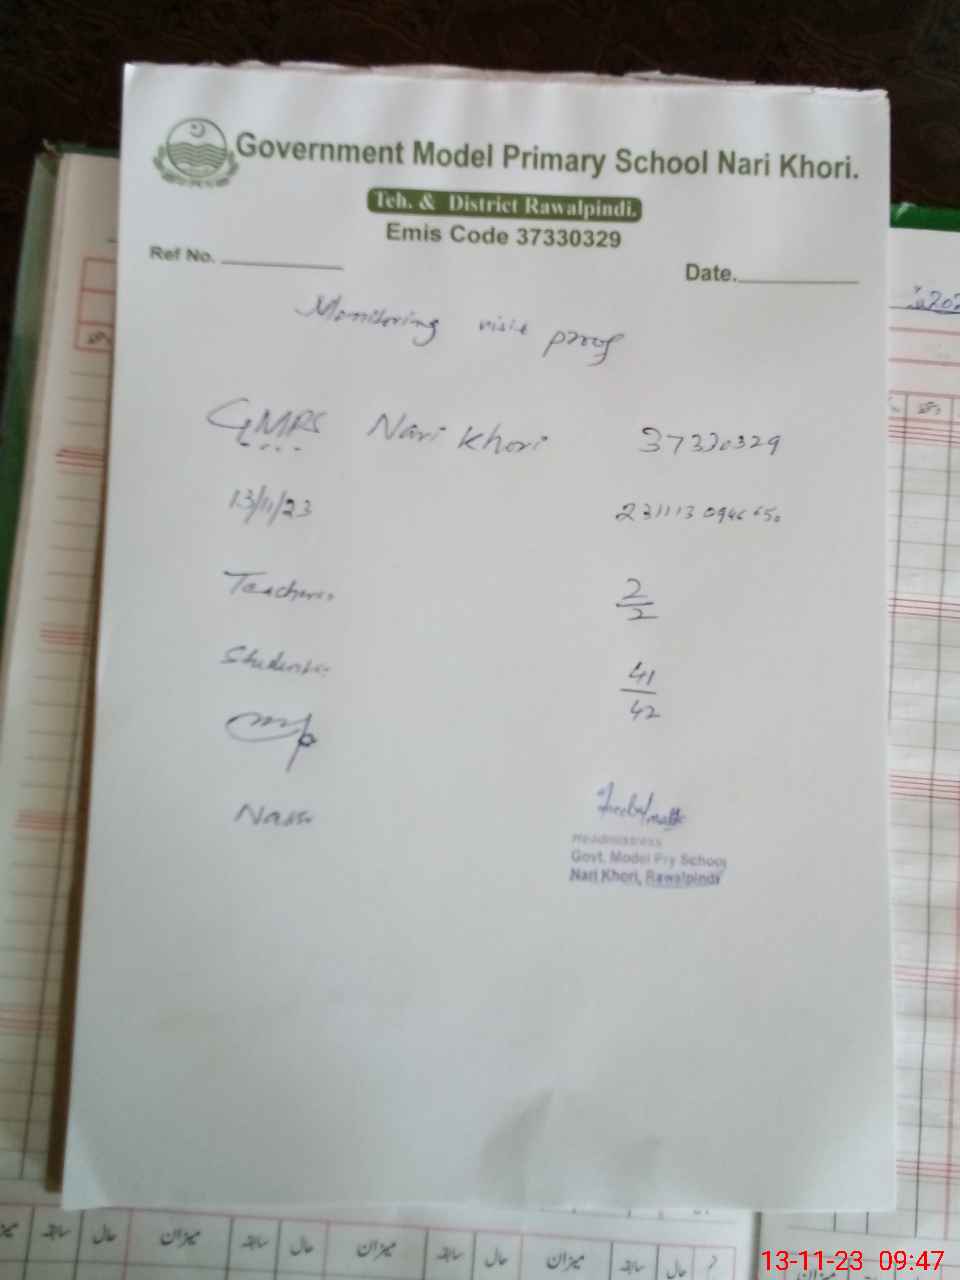 Government Model Primary School Nari Khori.
Teh. & District Rawalpindi.
Emis Code 37330329
Ref No.
Date.
Monitoring visit proof
GMPS Nari Khori 37330329
13/11/23 231113 0946 650
Teachers 2/2
Students 41/42
Headmistress
Govt. Model Pry School
Nari Khori, Rawalpindi
میزان حال سابقہ میزان حال سابقہ میزان حال سابقہ میزان حال سابقہ
13-11-23 09:47